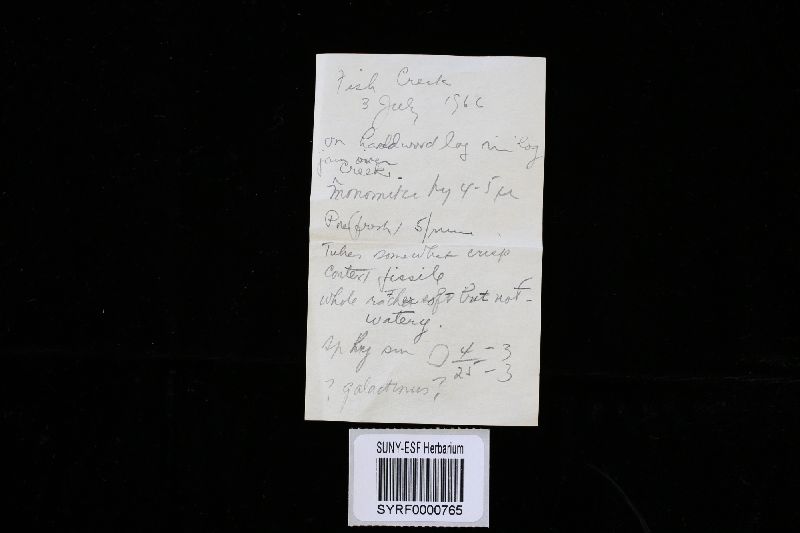 Fish Creek
3 July 1966
on hardwood log in log
jam over
creek.
monomitic hy 4-5 µ
Pore (fresh) 5/mm
Tubes somewhat crisp
context fissile
whole rather soft but not
watery.
sp hy sm 4 - 3
25 - 3
? galactinus?
SUNY-ESF Herbarium
SYRF0000765